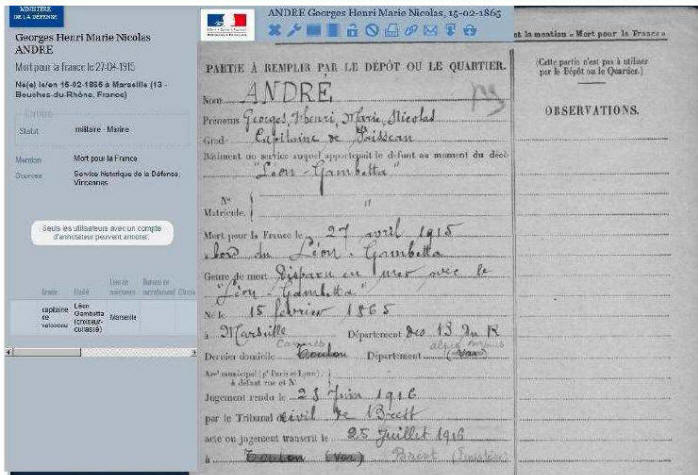 MINISTÈRE
DE LA DÉFENSE
Georges Henri Marie Nicolas
ANDRE
Mort pour la france le 27-04-1915
Né(e) le/en 15-02-1865 à Marseille (13 -
Bouches-du-Rhône, France)
Statut militaire - Marine
Mention Mort pour la France
Sources Service historique de la Défense,
Vincennes
Seuls les utilisateurs avec un compte
d'annotateur peuvent annoter.
Grade Unité Lieu de
naissance
capitaine
de
vaisseau
Léon
Gambetta
(croiseur-
cuirassé)
Marseille
ANDRE Georges Henri Marie Nicolas, 15-02-1865
et la mention « Mort pour la France »
PARTIE À REMPLIR PAR LE DÉPÔT OU LE QUARTIER.
(Cette partie n'est pas à utiliser
par le Dépôt ou le Quartier.)
OBSERVATIONS.
Nom ANDRÉ
Prénoms Georges, Henri, Marie, Nicolas
Grade Capitaine de Vaisseau
Bâtiment ou service auquel appartenait le défunt au moment du décès
"Léon-Gambetta"
N°
Matricule. "
Mort pour la France le 27 avril 1915
à bord du Léon-Gambetta
Genre de mort Disparu en mer avec le
"Léon-Gambetta"
Né le 15 février 1865
à Marseille Département des B. du R
Cannes alpes mmes
Dernier domicile Toulon Département (Var)
Arr' municipal (p' Paris et Lyon),
à défaut rue et N°
Jugement rendu le 23 Juin 1916
par le Tribunal civil de Brest
acte ou jugement transcrit le 25 Juillet 1916
à Toulon (Var) Brest (Finistère)